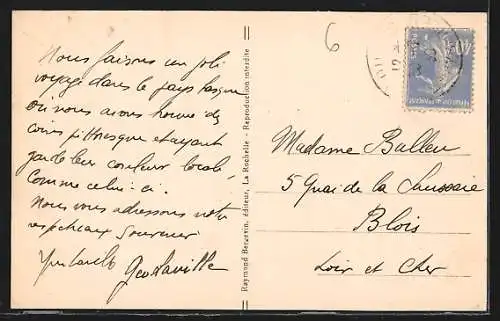 Nous faisons un joli
voyage dans le pays basque
où nous avons trouvé des
coins pittoresque et ayant
gardé leur couleur locale,
Comme celui-ci.
Nous vous adressons notre
respectueux Souvenir
Raymond Bergevin, éditeur, La Rochelle - Reproduction interdite
6
POSTES
Madame Balleu
5 Quai de la Saussaie
Blois
Loir et Cher